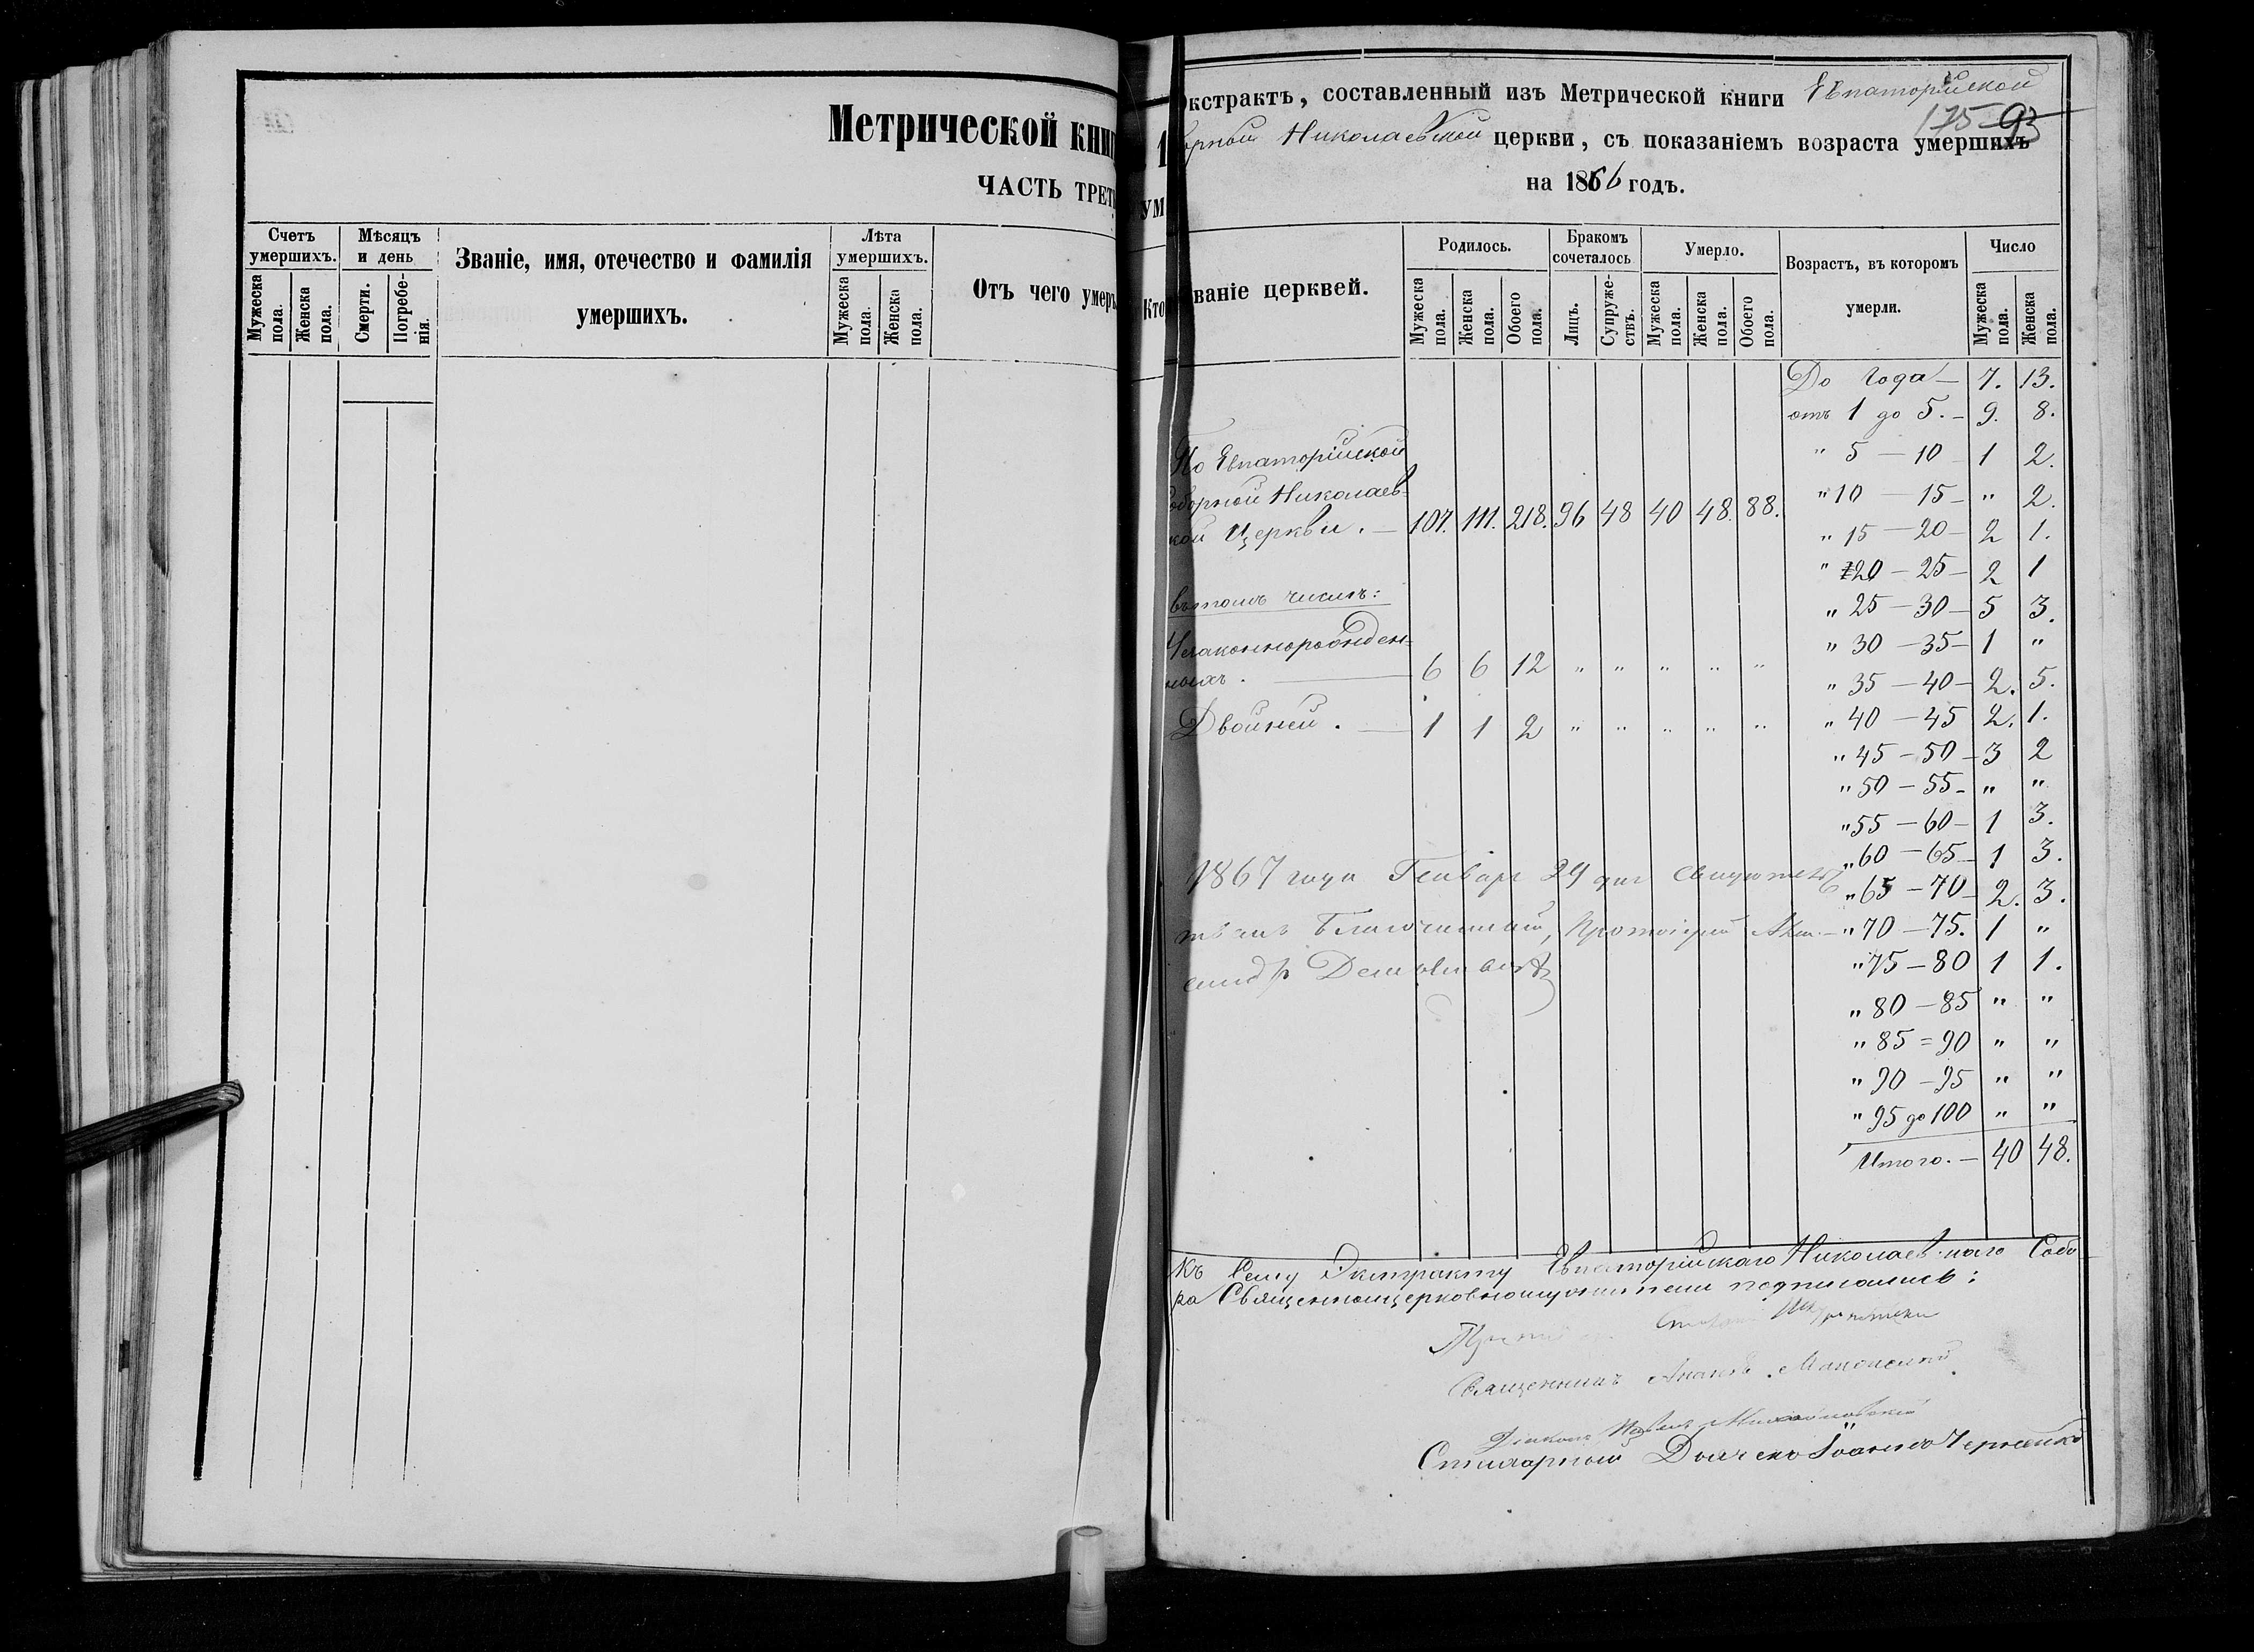 Метрической книг
ЧАСТЬ ТРЕТ
Счетъ умершихъ.
Мужеска пола.
Женска пола.
Мѣсяцъ и день
Смерти.
Погребенія.
Званіе, имя, отечество и фамилія
умершихъ.
Лѣта умершихъ.
Мужеска пола.
Женска пола.
Отъ чего умеръ
1
УМ
Кто
Экстрактъ, составленный изъ Метрической книги Евпаторійской
175 93
орной Николаевской церкви, съ показаніемъ возраста умершихъ
на 1866 годъ.
званіе церквей.
Родилось.
Мужеска пола.
Женска пола.
Обоего пола.
Бракомъ сочеталось
Лицъ.
Супружествъ.
Умерло.
Мужеска пола.
Женска пола.
Обоего пола.
Возрастъ, въ которомъ
умерли.
Число
Мужеска пола.
Женска пола.
По Евпаторійской
оборной Николаев-
кой Церкви. — 107. 111. 218. 96 48 40 48. 88.
въ томъ числѣ:
Незаконнорожден-
ныхъ. — 6 6 12 " " " " "
Двойней. — 1 1 2 " " " " "
До года — 7. 13.
отъ 1 до 5. — 9. 8.
" 5 — 10 1 2.
" 10 — 15 — " 2.
" 15 — 20 — 2 1.
" 20 — 25 — 2 1
" 25 — 30 — 5 3.
" 30 — 35 — 1 "
" 35 — 40 — 2. 5.
" 40 — 45 2. 1.
" 45 — 50 — 3 2
" 50 — 55 — " "
" 55 — 60 — 1 3.
" 60 — 65 — 1 3.
" 65 — 70 — 2. 3.
" 70 — 75. 1 "
" 75 — 80 1 1.
" 80 — 85 " "
" 85 = 90 " "
" 90 — 95 " "
" 95 до 100 " "
Итого. — 40 48.
1867 года Генваря 29 дня свидѣтель
Благочинный, Протоіерей
Къ сему Экстракту Евпаторійскаго Николаевскаго Собо
ра Священноцерковнослужители подписались:
Священникъ
Діаконъ Павелъ
Стихарный Дьячекъ Іоаннъ Черненко